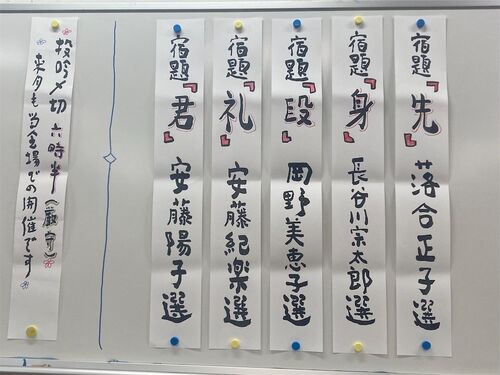 宿題「先」 落合正子選
宿題「身」 長谷川宗太郎選
宿題「段」 岡野美恵子選
宿題「礼」 安藤紀楽選
宿題「君」 安藤陽子選
投吟〆切 六時半(厳守)
来月も当会場での開催です